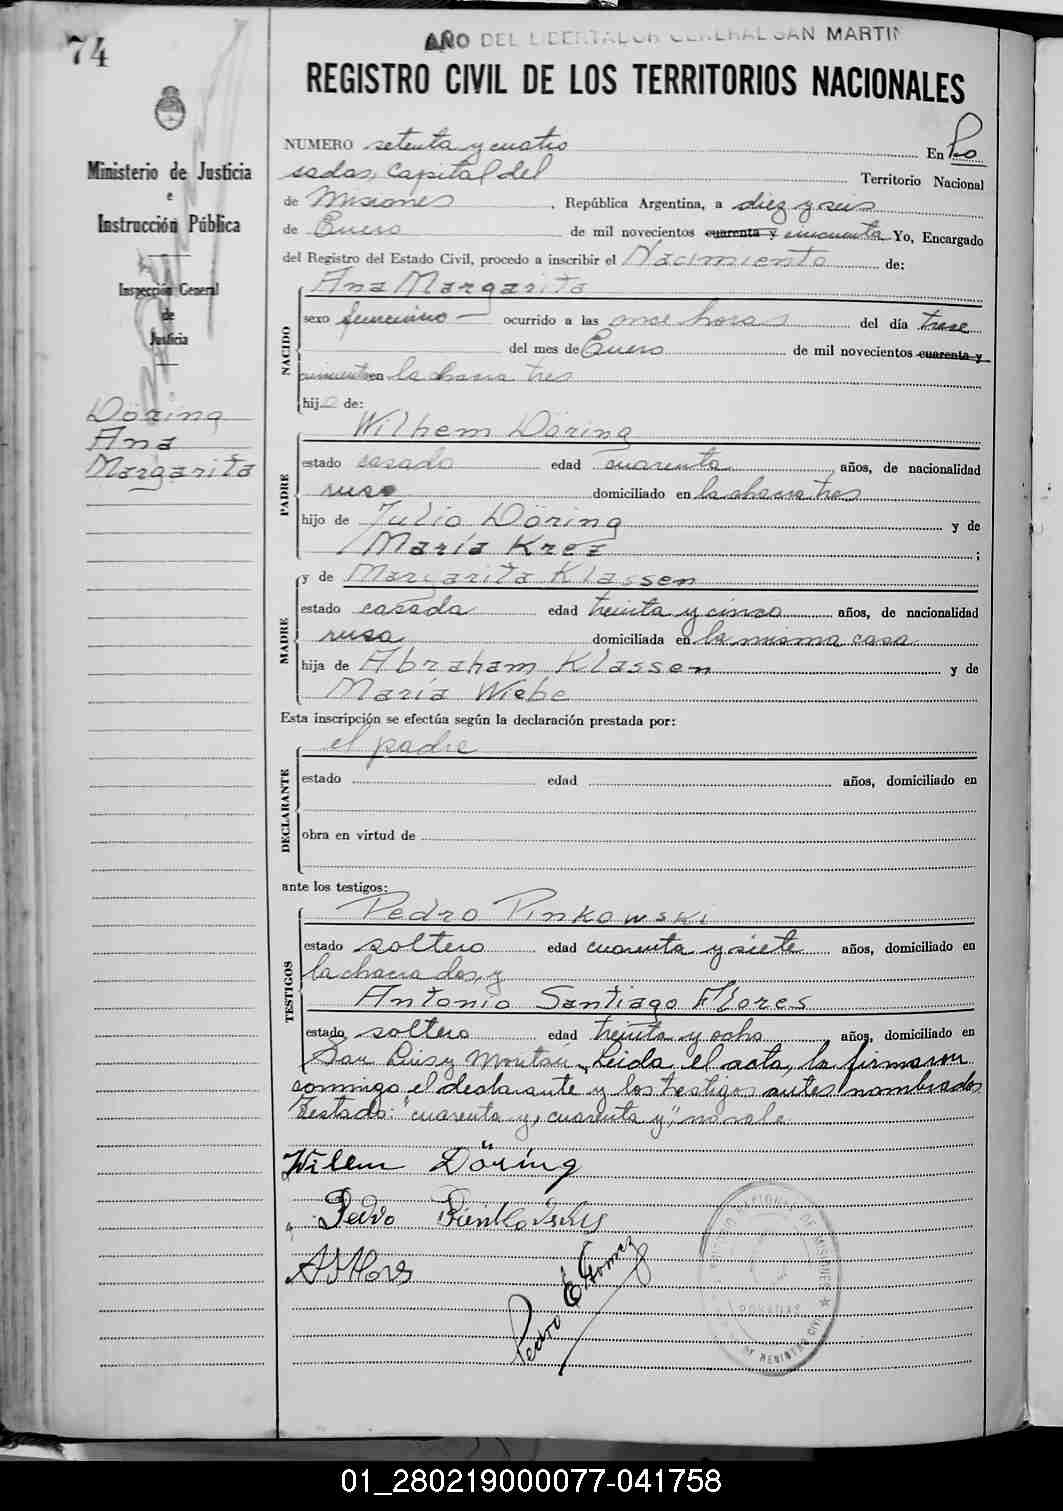 74
AÑO DEL LIBERTADOR GENERAL SAN MARTIN
REGISTRO CIVIL DE LOS TERRITORIOS NACIONALES
Ministerio de Justicia
e
Instrucción Pública
Inspección General
de
Justicia
Döring
Ana
Margarita
NUMERO setenta y cuatro En Po
sadas, Capital del Territorio Nacional
de Misiones, República Argentina, a diez y seis
de Enero de mil novecientos cuarenta y cincuenta Yo, Encargado
del Registro del Estado Civil, procedo a inscribir el Nacimiento de:
NACIDO
Ana Margarita
sexo femenino — ocurrido a las once horas del día trece
del mes de Enero de mil novecientos cuarenta y
cincuenta en la chacra tres
hija de:
PADRE
Wilhem Döring
estado casado edad cuarenta años, de nacionalidad
ruso domiciliado en la chacra tres
hijo de Julio Döring y de
María Krez;
MADRE
y de Margarita Klassen
estado casada edad treinta y cinco años, de nacionalidad
rusa domiciliada en la misma casa
hija de Abraham Klassen y de
María Wiebe
Esta inscripción se efectúa según la declaración prestada por:
DECLARANTE
el padre
estado edad años, domiciliado en
obra en virtud de
ante los testigos:
TESTIGOS
Pedro Pinkowski
estado soltero edad cuarenta y siete años, domiciliado en
la chacra dos, y
Antonio Santiago Flores
estado soltero edad treinta y ocho años, domiciliado en
San Luis y Leida el acta, la firmaron
conmigo el declarante y los testigos antes nombrados
Testado: "cuarenta y, cuarenta y", no vale
Willem Döring
Pedro
Pedro E Gomez
POSADAS
01_280219000077-041758